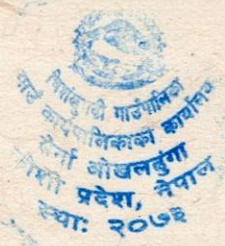 गाउँपालिका
गाउँ कार्यपालिकाको कार्यालय
ओखलढुंगा
कोशी प्रदेश, नेपाल
स्था: २०७३